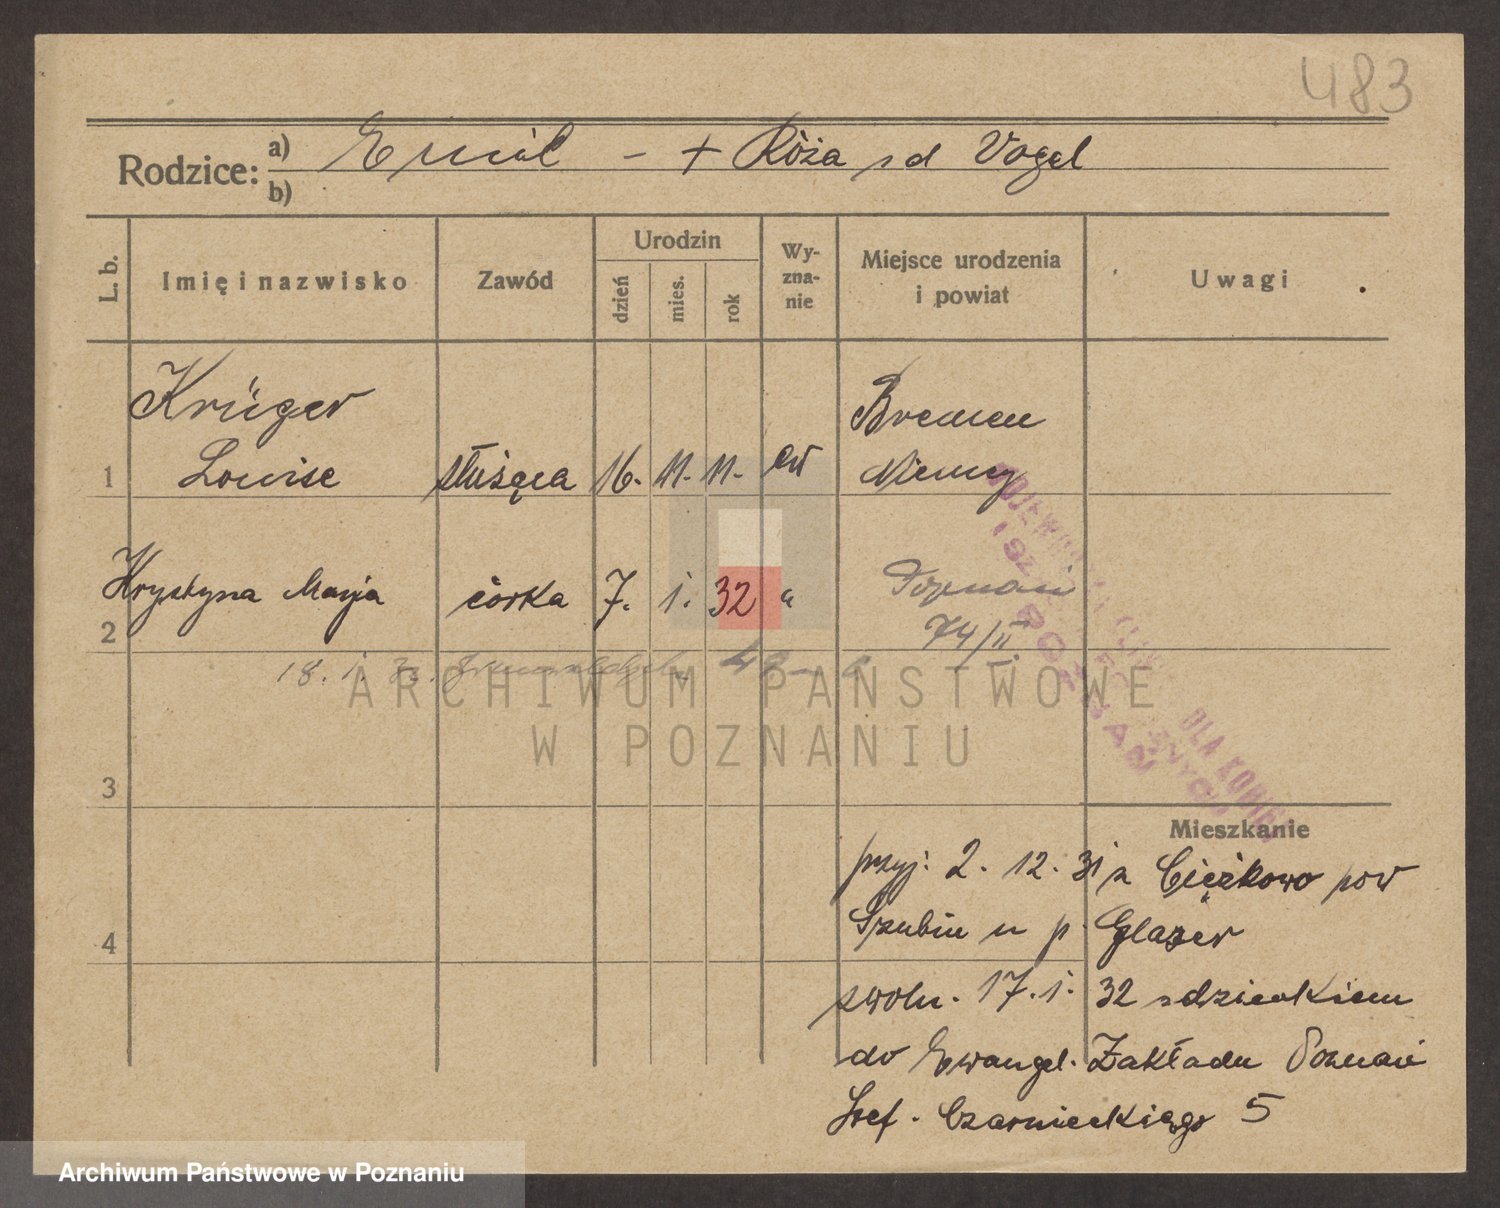 483
Rodzice: a) Emil – + Róża zd Vogel
b)
L. b. Imię i nazwisko Zawód Urodzin dzień mies. rok Wyzna-nie Miejsce urodzenia i powiat Uwagi
Krüger Bremen
1 Louise służąca 16. 11. 11. ew Niemcy
Krystyna Marja córka 7. 1. 32 " Poznań
2 74/II.
18. 1. 32.
ARCHIWUM PAŃSTWOWE
W POZNANIU
DLA KOBIET
3
Mieszkanie
przyj. 2. 12. 31 z Ciężkowo pow
4 Szubin u p. Glazer
zwoln. 17. 1. 32 z dzieckiem
do Ewangel. Zakładu Poznań
Szef. Czarnieckiego 5
Archiwum Państwowe w Poznaniu